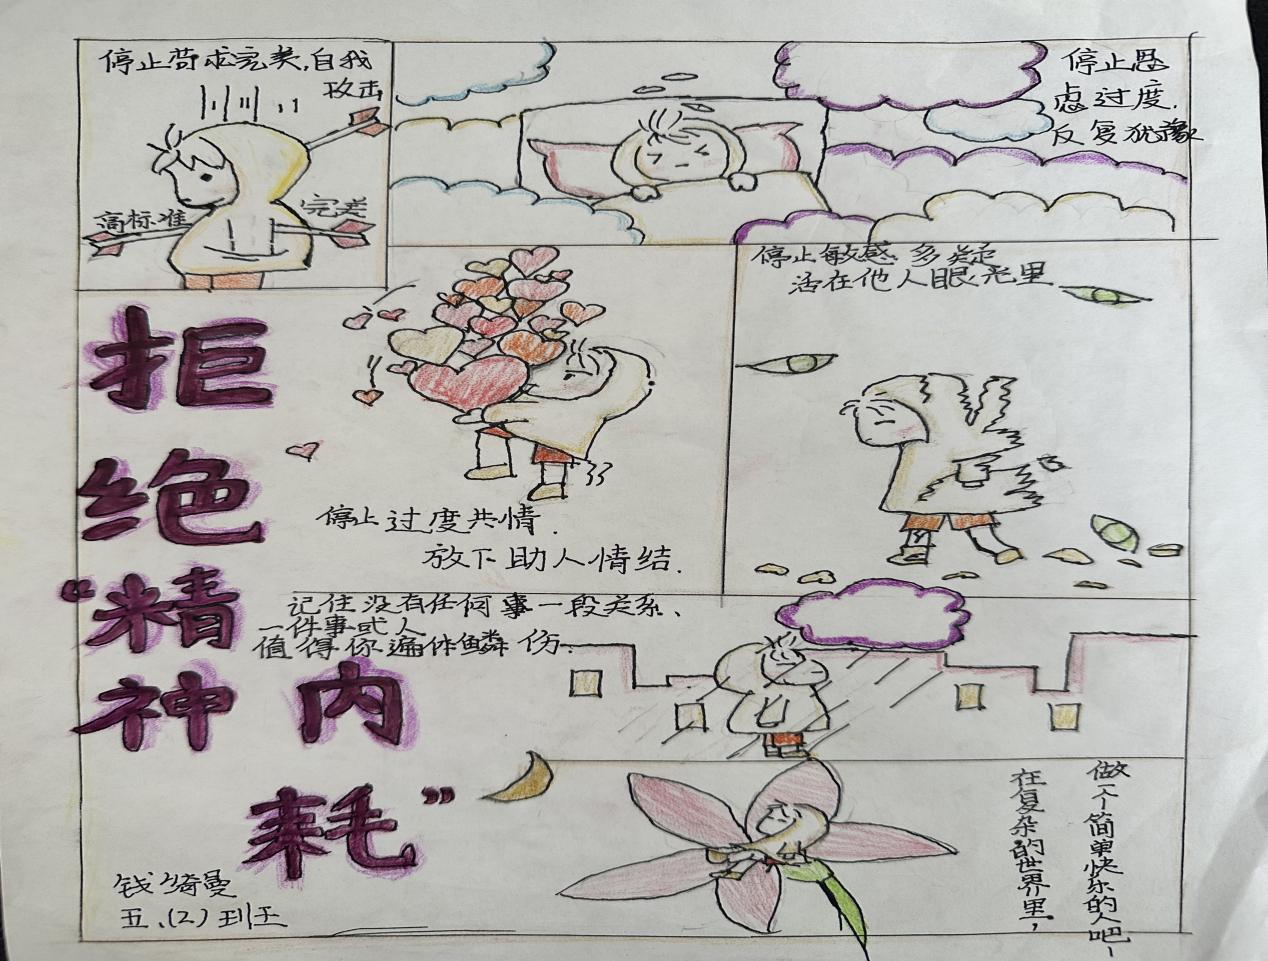 停止苛求完美,自我
攻击
高标准
完美
停止思
虑过度.
反复犹豫
停止敏感多疑
活在他人眼光里
停止过度共情.
放下助人情结.
拒
绝
“精
神内
耗”
记住没有任何事一段关系、
一件事或人
值得你遍体鳞伤.
做一个简单快乐的人吧!
在复杂的世界里,
钱绮曼
五、(2)班